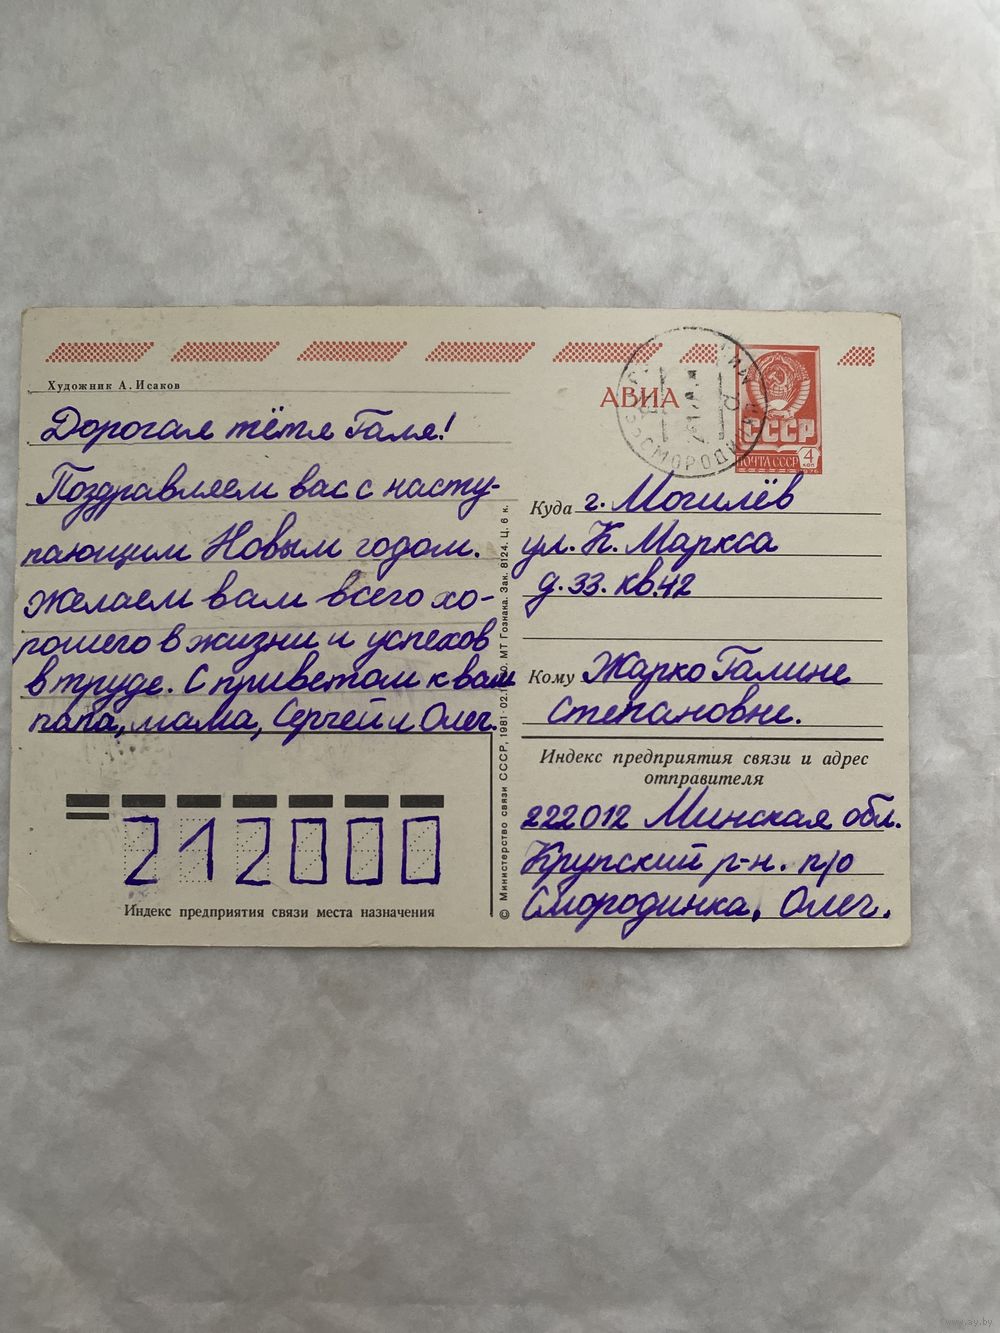 Художник А. Исаков
Дорогая тётя Галя!
Поздравляем вас с насту-
пающим Новым годом.
Желаем вам всего хо-
рошего в жизни и успехов
в труде. С приветом к вам
папа, мама, Сергей и Олег.
212000
Индекс предприятия связи места назначения
© Министерство связи СССР, 1981 МТ Гознака. Зак. 8124. Ц. 6 к.
АВИА
СССР
ПОЧТА СССР
4
коп
СМОРОДИНКА
Куда г. Могилёв
ул. К. Маркса
д. 33. кв. 42
Кому Жарко Галине
Степановне.
Индекс предприятия связи и адрес
отправителя
222012 Минская обл.
Крупский р-н. п/о
Смородинка, Олег.
www.ay.by